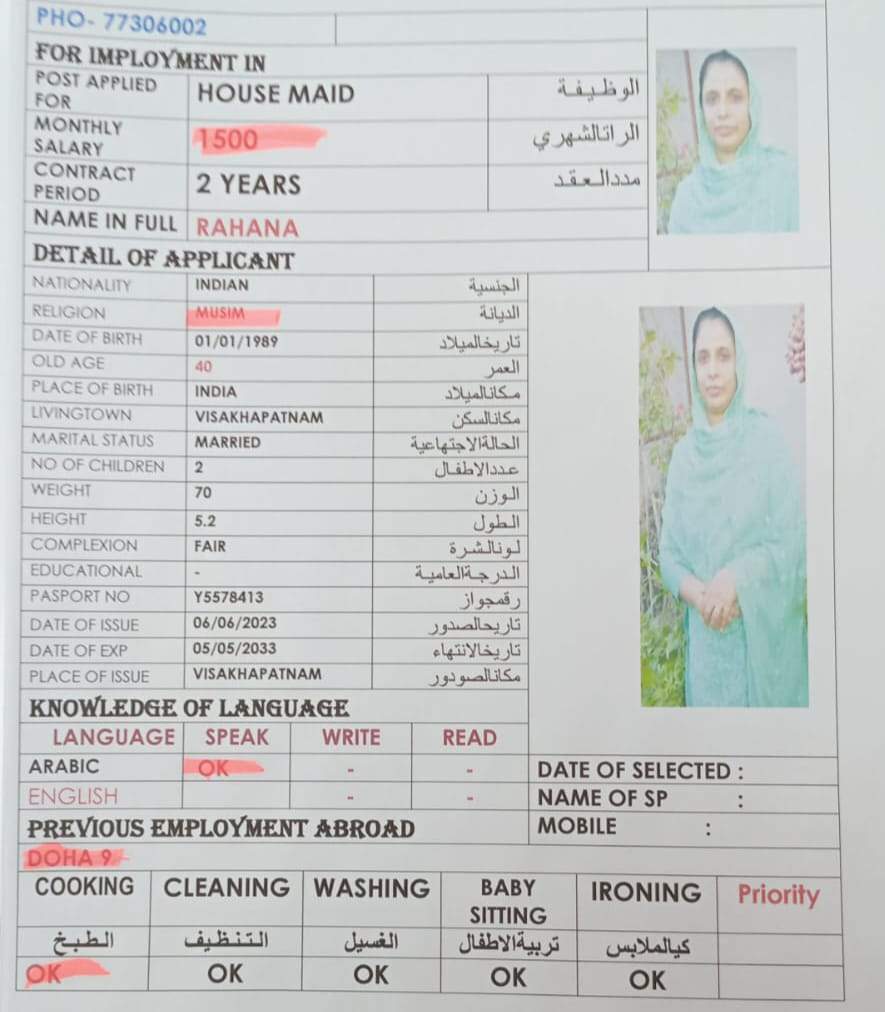 PHO- 77306002
FOR IMPLOYMENT IN
POST APPLIED FOR HOUSE MAID الوظيفة
MONTHLY SALARY 1500 الراتالشهري
CONTRACT PERIOD 2 YEARS مددالعقد
NAME IN FULL RAHANA
DETAIL OF APPLICANT
NATIONALITY INDIAN الجنسية
RELIGION MUSIM الديانة
DATE OF BIRTH 01/01/1989 تاريخالميلاد
OLD AGE 40 العمر
PLACE OF BIRTH INDIA مكانالميلاد
LIVINGTOWN VISAKHAPATNAM مكانالسكن
MARITAL STATUS MARRIED الحالةالاجتهاعية
NO OF CHILDREN 2 عددالاطفال
WEIGHT 70 الوزن
HEIGHT 5.2 الطول
COMPLEXION FAIR لونالشرة
EDUCATIONAL - الدرجةالعامية
PASPORT NO Y5578413 رقمجواز
DATE OF ISSUE 06/06/2023 تاريحالصدور
DATE OF EXP 05/05/2033 تاريخالانتهاء
PLACE OF ISSUE VISAKHAPATNAM مكانالصودور
KNOWLEDGE OF LANGUAGE
LANGUAGE SPEAK WRITE READ
ARABIC OK - - DATE OF SELECTED :
ENGLISH - - NAME OF SP :
PREVIOUS EMPLOYMENT ABROAD MOBILE :
DOHA 9
COOKING CLEANING WASHING BABY SITTING IRONING Priority
الطبخ التنظيف الغسيل تربيةالاطفال كيالملابس
OK OK OK OK OK